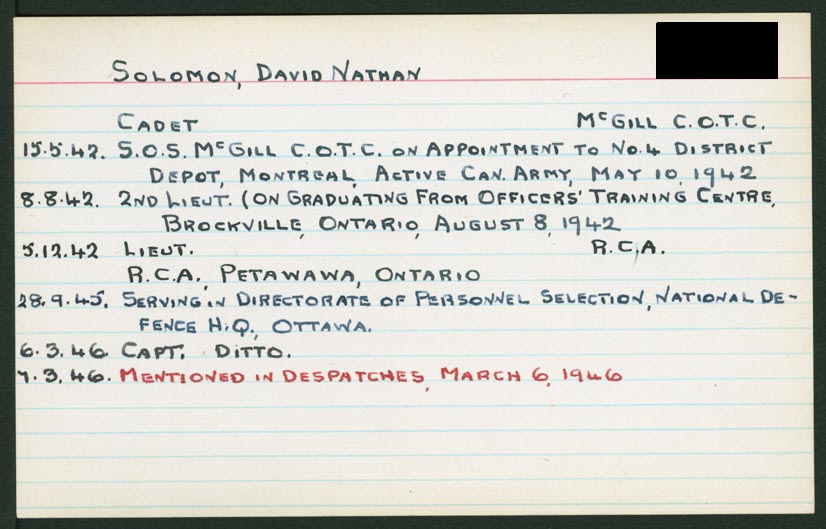 SOLOMON, DAVID NATHAN
CADET McGILL C.O.T.C.
15.5.42. S.O.S. McGILL C.O.T.C. ON APPOINTMENT TO NO.4 DISTRICT
DEPOT, MONTREAL, ACTIVE CAN. ARMY, MAY 10, 1942
8.8.42. 2ND LIEUT. (ON GRADUATING FROM OFFICERS' TRAINING CENTRE,
BROCKVILLE, ONTARIO, AUGUST 8, 1942
5.12.42 LIEUT. R.C.A.
R.C.A., PETAWAWA, ONTARIO
28.9.45. SERVING IN DIRECTORATE OF PERSONNEL SELECTION, NATIONAL DE-
FENCE H.Q., OTTAWA.
6.3.46. CAPT. DITTO.
7.3.46. MENTIONED IN DESPATCHES, MARCH 6, 1946